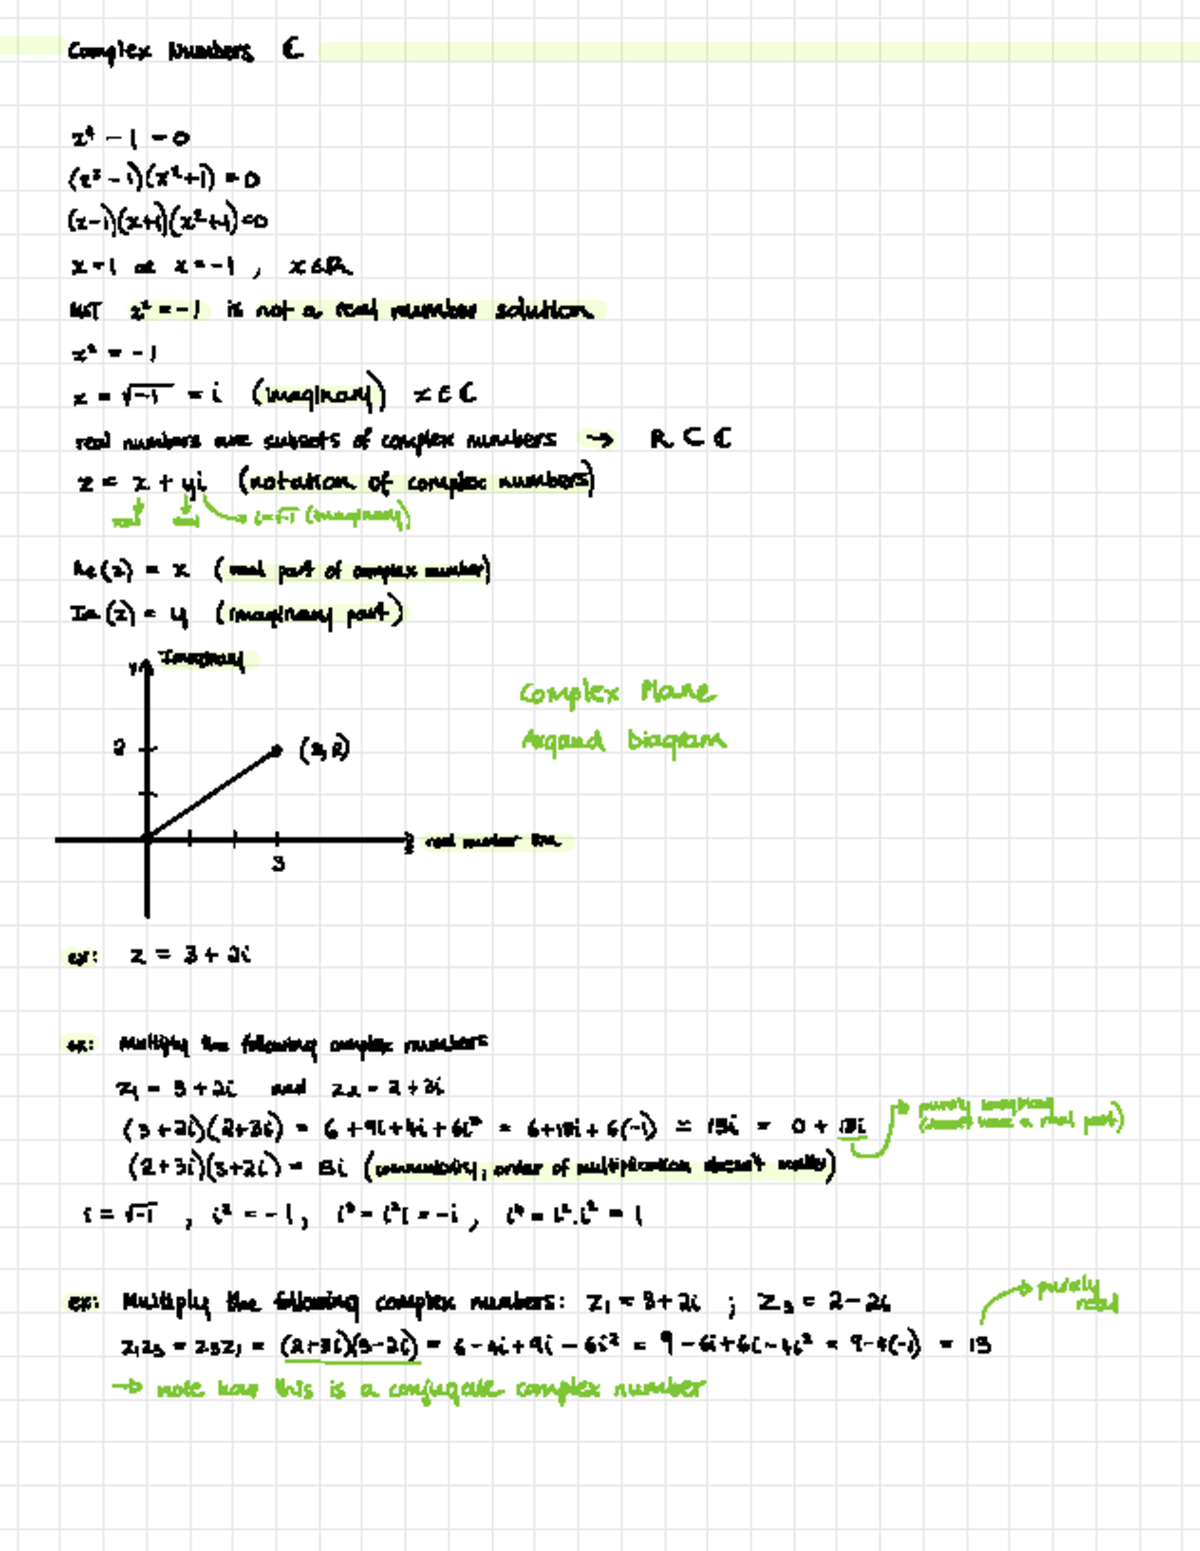 Complex Numbers ℂ
x⁴ − 1 = 0
(x² − 1)(x² + 1) = 0
(x−1)(x+1)(x²+1) = 0
x = 1 or x = −1 , x ∈ ℝ
BUT x² = −1 is not a real number solution.
x² = −1
x = √−1 = i (imaginary) x ∈ ℂ
real numbers are subsets of complex numbers → ℝ ⊂ ℂ
z = x + yi (notation of complex numbers)
real real → i=√−1 (imaginary)
Re(z) = x (real part of complex number)
Im(z) = y (imaginary part)
y Imaginary
Complex Plane
Argand Diagram
2 (3,2)
real number line
3
ex: z = 3 + 2i
ex: Multiply the following complex numbers
z₁ = 3 + 2i and z₂ = 2 + 3i
(3+2i)(2+3i) = 6 + 9i + 4i + 6i² = 6 + 13i + 6(−1) = 13i = 0 + 13i
→ purely imaginary
(doesn't have a real part)
(2+3i)(3+2i) = 13i (commutativity; order of multiplication doesn't matter)
i = √−1 , i² = −1, i³ = i²i = −i , i⁴ = i².i² = 1
ex: Multiply the following complex numbers: z₁ = 3+2i ; z₃ = 2−2i
→ purely real
z₁z₃ = z₃z₁ = (2+3i)(3−2i) = 6 − 4i + 9i − 6i² = 9 − 6i + 6i − 4i² = 9−4(−1) = 13
→ note how this is a conjugate complex number